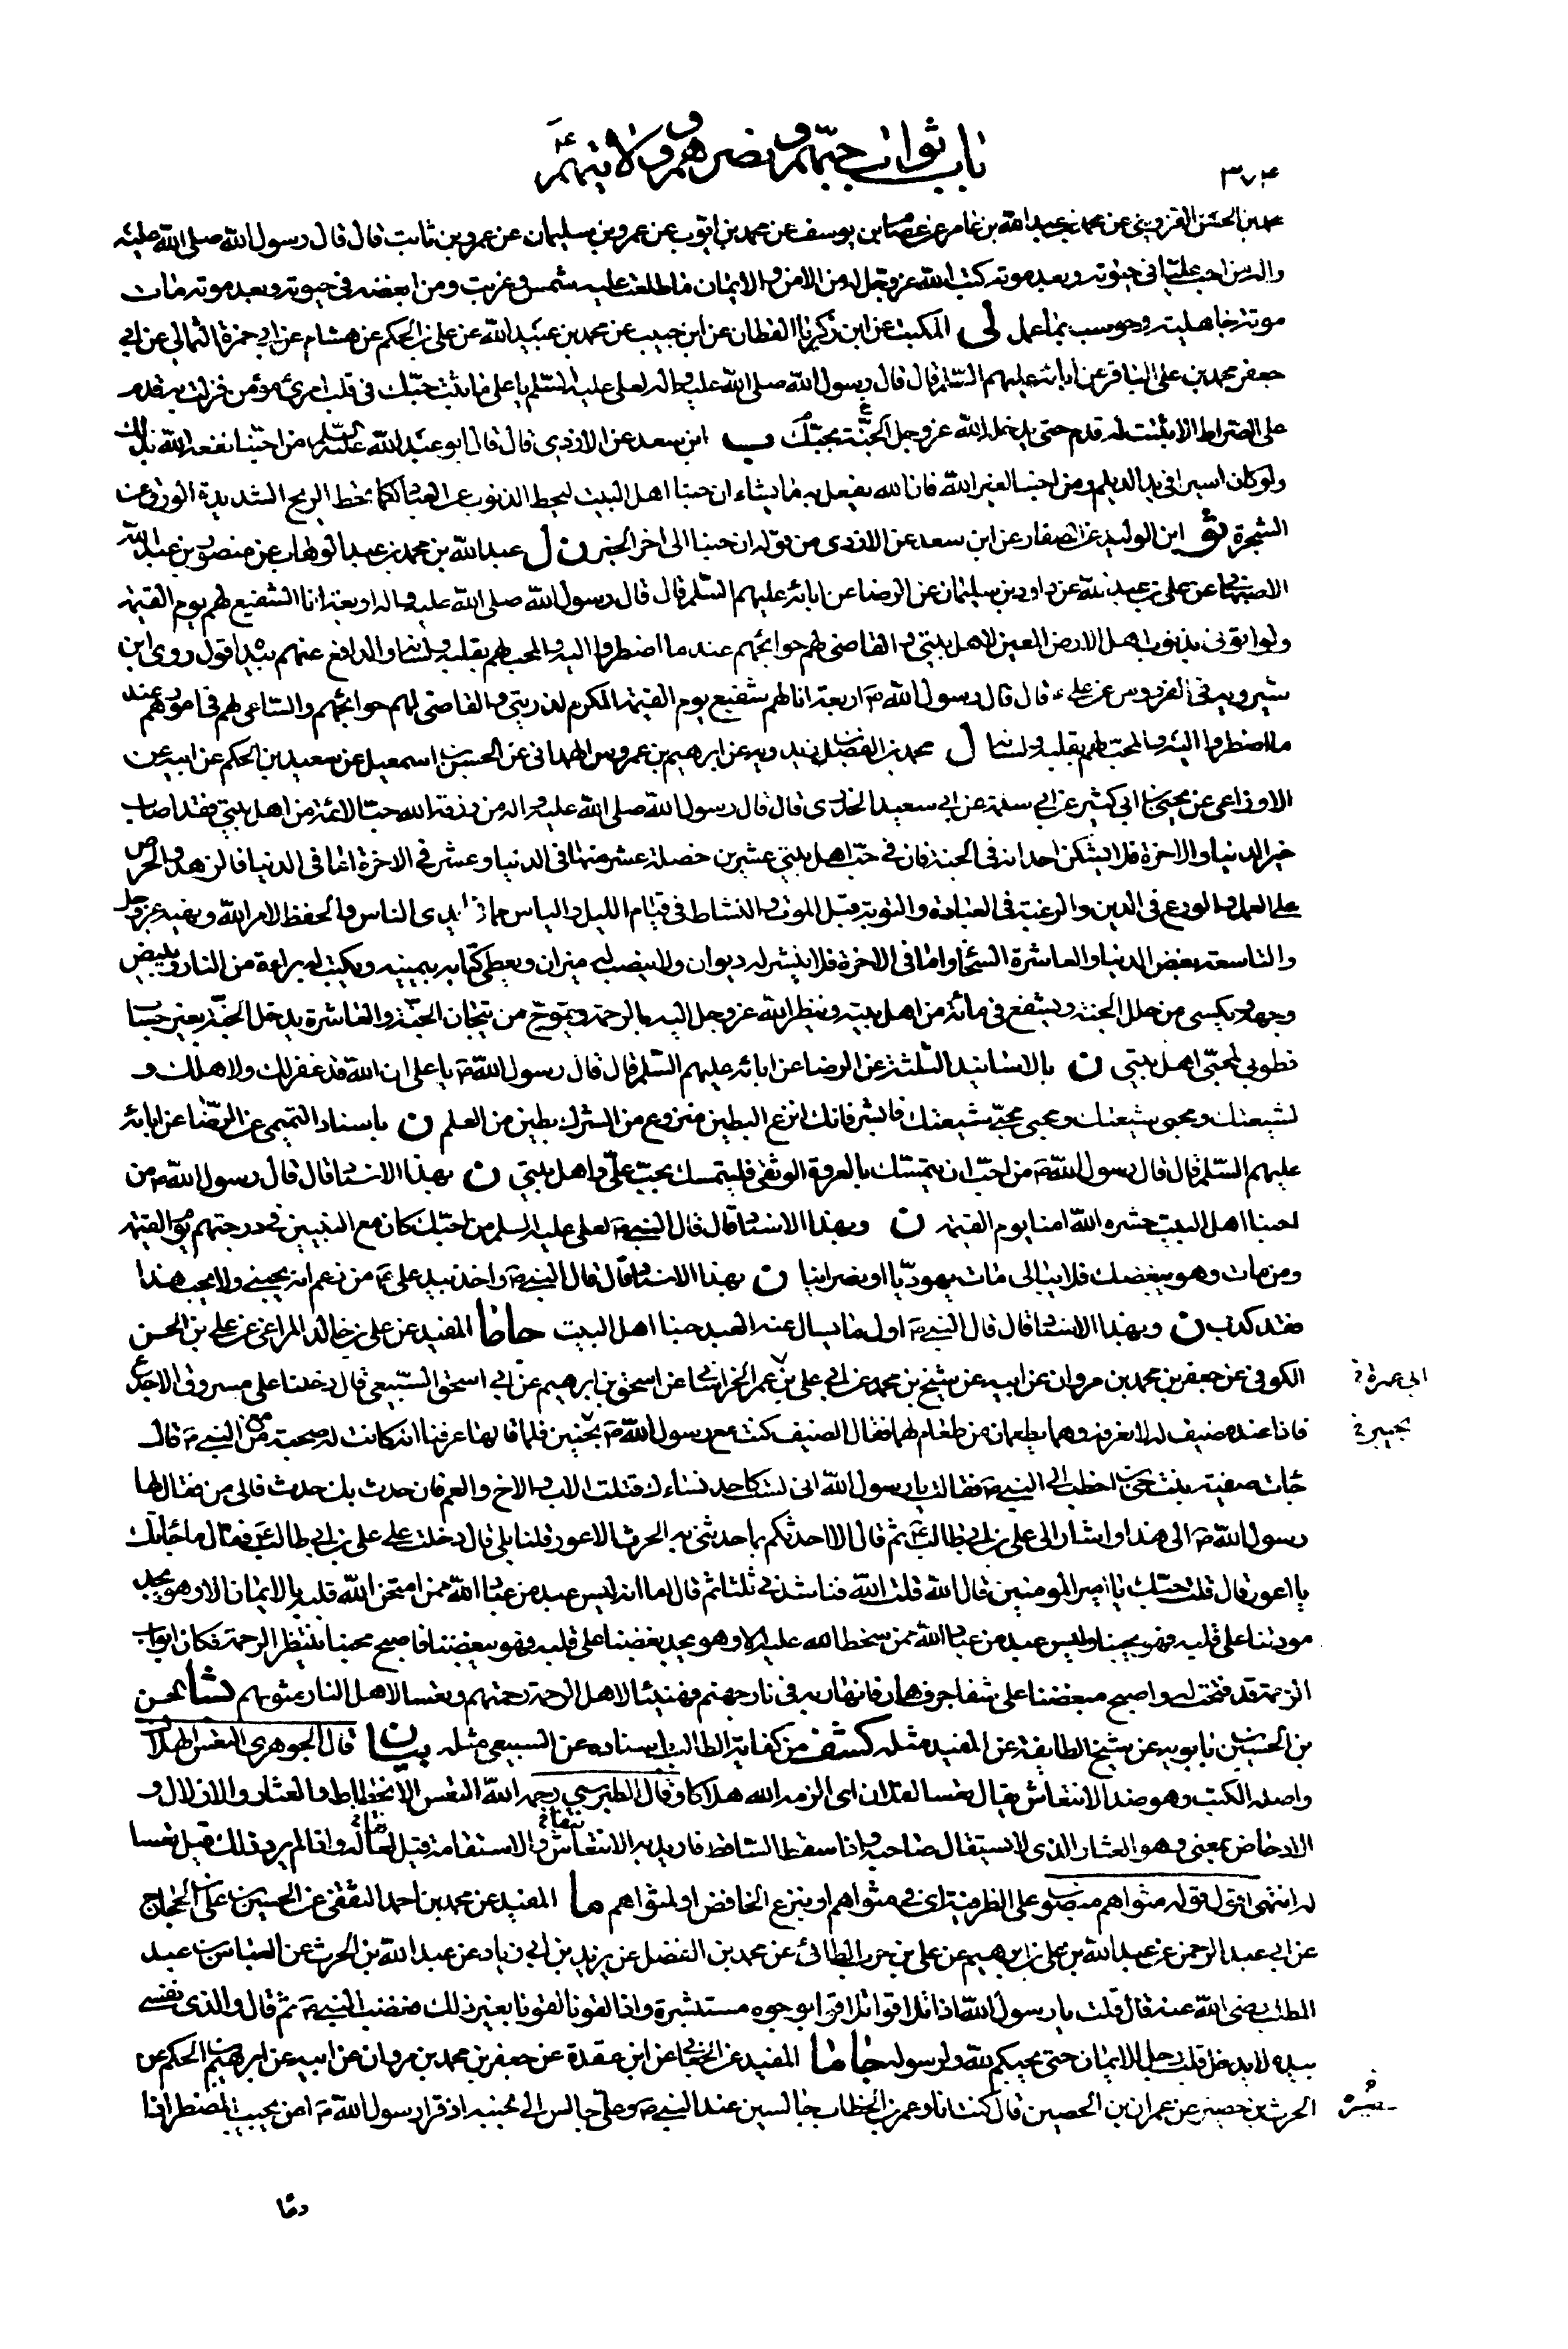 باب ثواب حبّهم و نصرهم و ولايتهم عۤ
٣٧٤
محمد بن الحسن القزويني عن محمد بن عبد الله بن عامر عن عصام بن يوسف عن محمد بن ايّوب عن عمرو بن سليمان عن عمرو بن ثابت قال قال رسول الله صلى الله عليه
واله من احب عليّا في حيوته و بعد موته كتب الله عز و جل له من الامن و الايمان ما طلعت عليه شمس و غربت و من ابغضه في حيوته و بعد موته مات
موتة جاهلية و حوسب بما عمل لى المكتب عن ابن زكريا القطان عن ابن حبيب عن محمد بن عبيد الله عن علي بن الحكم عن هشام عن ابي حمزة الثمالي عن ابي
جعفر محمد بن علي الباقر عن ابائه عليهم السّلم قال قال رسول الله صلى الله عليه واله لعلي عليه السّلم يا علي ما ثبت حبّك في قلب امرئ مؤمن فزلت به قدم
على الصّراط الا ثبتت له قدم حتى يدخله الله عز و جل الجنّة بحبّك ب ابن سعد عن الازدي قال قال ابو عبد الله عليه السّلم من احبّنا نفعه الله بذلك
ولو كان اسيرا في يد الديلم و من احبنا لغير الله فان الله يفعل به ما يشاء ان حبنا اهل البيت ليحط الذنوب عن العباد كما تحط الريح الشديدة الورق عن
الشجرة ثو ابن الوليد عن الصفار عن ابن سعد عن الازدي من قوله ان حبنا الى اخر الخبر ن ل عبد الله بن محمد بن عبد الوهاب عن منصور بن عبد الله
الاصبهاني عن علي بن عبد الله عن داود بن سليمان عن الرضا عن ابائه عليهم السّلم قال قال رسول الله صلى الله عليه واله اربعة انا الشفيع لهم يوم القيمة
ولو اتوني بذنوب اهل الارض المعين لاهل بيتي و القاضي لهم حوائجهم عند ما اضطروا اليه و المحب لهم بقلبه و لسانه و الدافع عنهم بيده اقول روى ابن
شيرويه في الفردوس عن علي ع قال قال رسول الله صۤ اربعة انا لهم شفيع يوم القيمة المكرم لذريتي و القاضي لهم حوائجهم و الساعي لهم في امورهم عند
ما اضطروا اليه و المحبّ لهم بقلبه و لسانه ل محمد بن الفضل بن زيدويه عن ابرهيم بن عمروس الهمداني عن الحسن بن اسمعيل عن سعيد بن الحكم عن ابيه عن
الاوزاعي عن يحيى بن ابي كثير عن ابي سلمة عن ابي سعيد الخدري قال قال رسول الله صلى الله عليه واله من رزقه الله حبّ الائمة من اهل بيتي فقد اصاب
خير الدنيا و الاخرة فلا يشكن احد انه في الجنة فان في حبّ اهل بيتي عشرين خصلة عشر منها في الدنيا و عشر في الاخرة اما في الدنيا فالزهد و الحرص
على العمل و الورع في الدين و الرغبة في العبادة و التوبة قبل الموت و النشاط في قيام الليل و الياس مما في ايدي الناس و الحفظ لامر الله و نهيه عز و جل
و التاسعة بغض الدنيا و العاشرة السخاء و اما في الاخرة فلا ينشر له ديوان و لا ينصب له ميزان و يعطى كتابه بيمينه و يكتب له براءة من النار و يبيض
وجهه و يكسى من حلل الجنة و يشفع في مائة من اهل بيته و ينظر الله عز و جل اليه بالرحمة و يتوّج من تيجان الجنّة و العاشرة يدخل الجنّة بغير حساب
فطوبى لمحبّي اهل بيتي ن بالاسانيد الثلثة عن الرضا عن ابائه عليهم السّلم قال قال رسول الله صۤ يا علي ان الله قد غفر لك و لاهلك و
لشيعتك و محبي شيعتك و محبي محبّي شيعتك فابشر فانك الانزع البطين منزوع من الشرك بطين من العلم ن باسناد التميمي عن الرّضا عن ابائه
عليهم السّلم قال قال رسول الله صۤ من احبّ ان يتمسّك بالعروة الوثقى فليتمسك بحبّ عليّ و اهل بيتي ن بهذا الاسناد قال قال رسول الله صۤ من
احبنا اهل البيت حشره الله امنا يوم القيمة ن و بهذا الاسناد قال قال النبي صۤ لعلي عليه السلم من احبّك كان مع النبيين في درجتهم يوم القيمة
و من مات و هو يبغضك فلا يبالي مات يهوديّا او نصرانيا ن بهذا الاسناد قال قال النبي صۤ و اخذ بيد علي عۤ من زعم انه يحبني و لا يحب هذا
فقد كذب ن و بهذا الاسناد قال قال النبي صۤ اول ما يسال عنه العبد حبنا اهل البيت جا ما المفيد عن علي بن خالد المراغي عن علي بن الحسن
الكوفي عن جعفر بن محمد بن مروان عن ابيه عن شيخ بن محمد عن ابي علي بن عمر الخراساني عن اسحق بن ابرهيم عن ابي اسحق السّبيعي قال دخلنا على مسروق الاجدع
ابي عمرة خ
فاذا عنده ضيف له لا نعرفه و هما يطعمان من طعام لهما فقال الضيف كنت مع رسول الله صۤ بحنين فلما قالها عرفنا انه كانت له صحبة من النبي صۤ قال
بخيبر خ
جاءت صفية بنت حي بن اخطب الى النبي صۤ فقالت يا رسول الله اني لست كاحد نساءك قتلت الاب و الاخ و العم فان حدث بك حدث فالى من فقال لها
رسول الله صۤ الى هذا و اشار الى علي بن ابي طالب عۤ ثم قال الا احدثكم بما حدثني به الحرث الاعور قلنا بلى قال دخلت على علي بن ابي طالب عۤ فقال ما جاء بك
يا اعور قال قلت حبّك يا امير المومنين قال الله قلت الله فناشدني ثلثا ثم قال اما انه ليس عبد من عباد الله ممن امتحن الله قلبه بالايمان الا و هو يجد
مودتنا على قلبه فهو يحبنا و ليس عبد من عباد الله ممن سخط الله عليه الا و هو يجد بغضنا على قلبه فهو يبغضنا فاصبح محبنا ينتظر الرحمة فكان ابواب
الرحمة قد فتحت له و اصبح مبغضنا على شفا جرف هار فانهار به في نار جهنم فهنيئا لاهل الرحمة رحمتهم و تعسا لاهل النار مثويهم بشا الحسن
بن الحسين بن بابويه عن شيخ الطايفة عن المفيد مثله كشف من كفاية الطالب باسناده عن السبيعي مثله بيان قال الجوهري التعس الهلاك
و اصله الكب و هو ضد الانتعاش يقال تعسا لفلان اى الزمه الله هلاكا و قال الطبرسي رحمه الله التعس الانحطاط و العثار و الازلال و
الادحاض بمعنى و هو العثار الذي لا يستقال صاحبه و اذا سقط الساقط فاريد به الانتعاش و الاستقامة قيل لعا له و اذا لم يرد ذلك قيل تعسا
له انتهى اقول قوله مثواهم منصوب على الظرفية اى في مثواهم او بنزع الخافض او لمثواهم ما المفيد عن محمد بن احمد الثقفي عن الحسين بن علي بن الحجاج
عن ابي عبد الرحمن عن عبد الله بن علي بن ابرهيم عن علي بن حرب الطائي عن محمد بن الفضل عن يزيد بن ابي زياد عن عبد الله بن الحرث عن العباس بن عبد
المطلب رضي الله عنه قال قلت يا رسول الله اذا تلاقوا تلاقوا بوجوه مستبشرة و اذا لقونا لقونا بغير ذلك فغضب النبي صۤ ثم قال و الذي نفسي
بيده لا يدخل قلب رجل الايمان حتى يحبكم لله و لرسوله جا ما المفيد عن الجعابي عن ابن عقدة عن جعفر بن محمد بن مروان عن ابيه عن ابرهيم بن الحكم عن
الحرث بن حصيرة عن عمران بن الحصين قال كنت انا و عمر بن الخطاب جالسين عند النبي صۤ و علي جالس الى جنبه اذ قرا رسول الله صۤ امن يجيب المضطر اذا
دعا